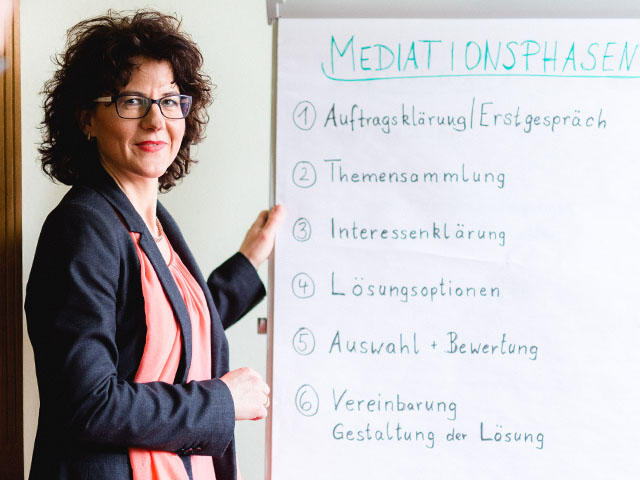 MEDIATIONSPHASEN
1 Auftragsklärung/Erstgespräch
2 Themensammlung
3 Interessenklärung
4 Lösungsoptionen
5 Auswahl + Bewertung
6 Vereinbarung
Gestaltung der Lösung